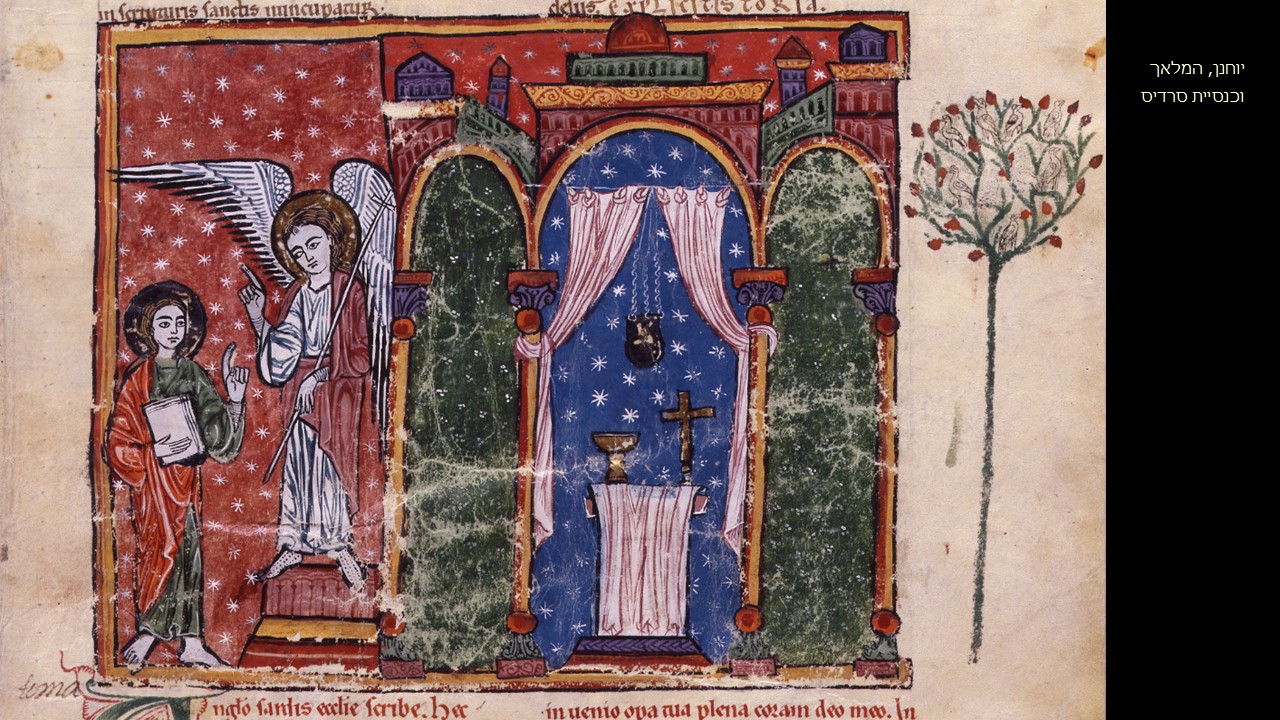 in scripturis sanctis nuncupatur.
delus. EXPLICIT STORIA.
יוחנן, המלאך
וכנסיית סרדיס
nglo sardis ecclie scribe. Hec
in uenio opa tua plena coram deo meo. In